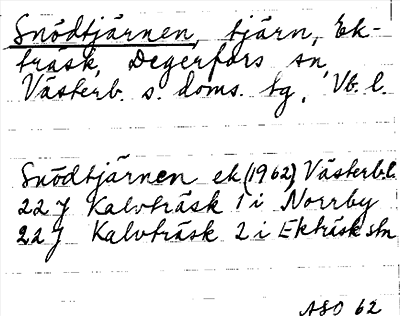 Snödtjärnen, tjärn, Ek-
träsk, Degerfors sn,
Västerb. s. doms. tg, Vb. l.
Snödtjärnen ek (1962) Västerb.l.
22 J Kalvträsk 1 i Norrby
22 J Kalvträsk 2 i Ekträsk stn
ASO 62